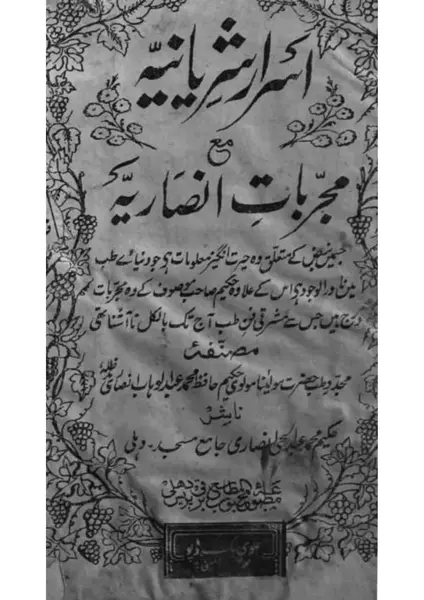 اسرار شریانیہ
مع
مجرّباتِ انصاریہ
جسمیں نبض کے متعلق وہ حیرت انگیز معلومات ہی جو دنیائے طب
میں نادر الوجود ہی اس کے علاوہ حکیم صاحب موصوف کے وہ مجربات بھی
درج ہیں جس سے مشرقی فن طب آج تک بالکل نا آشنا تھی
مصنفہٗ
مجدد طب حضرت مولینا مولوی حکیم حافظ محمد عبد الوہاب انصاری مدظلہٗ
ناشر
حکیم محمد عبد الحئی انصاری جامع مسجد۔ دہلی
محبوب المطابع برقی پریس دہلی